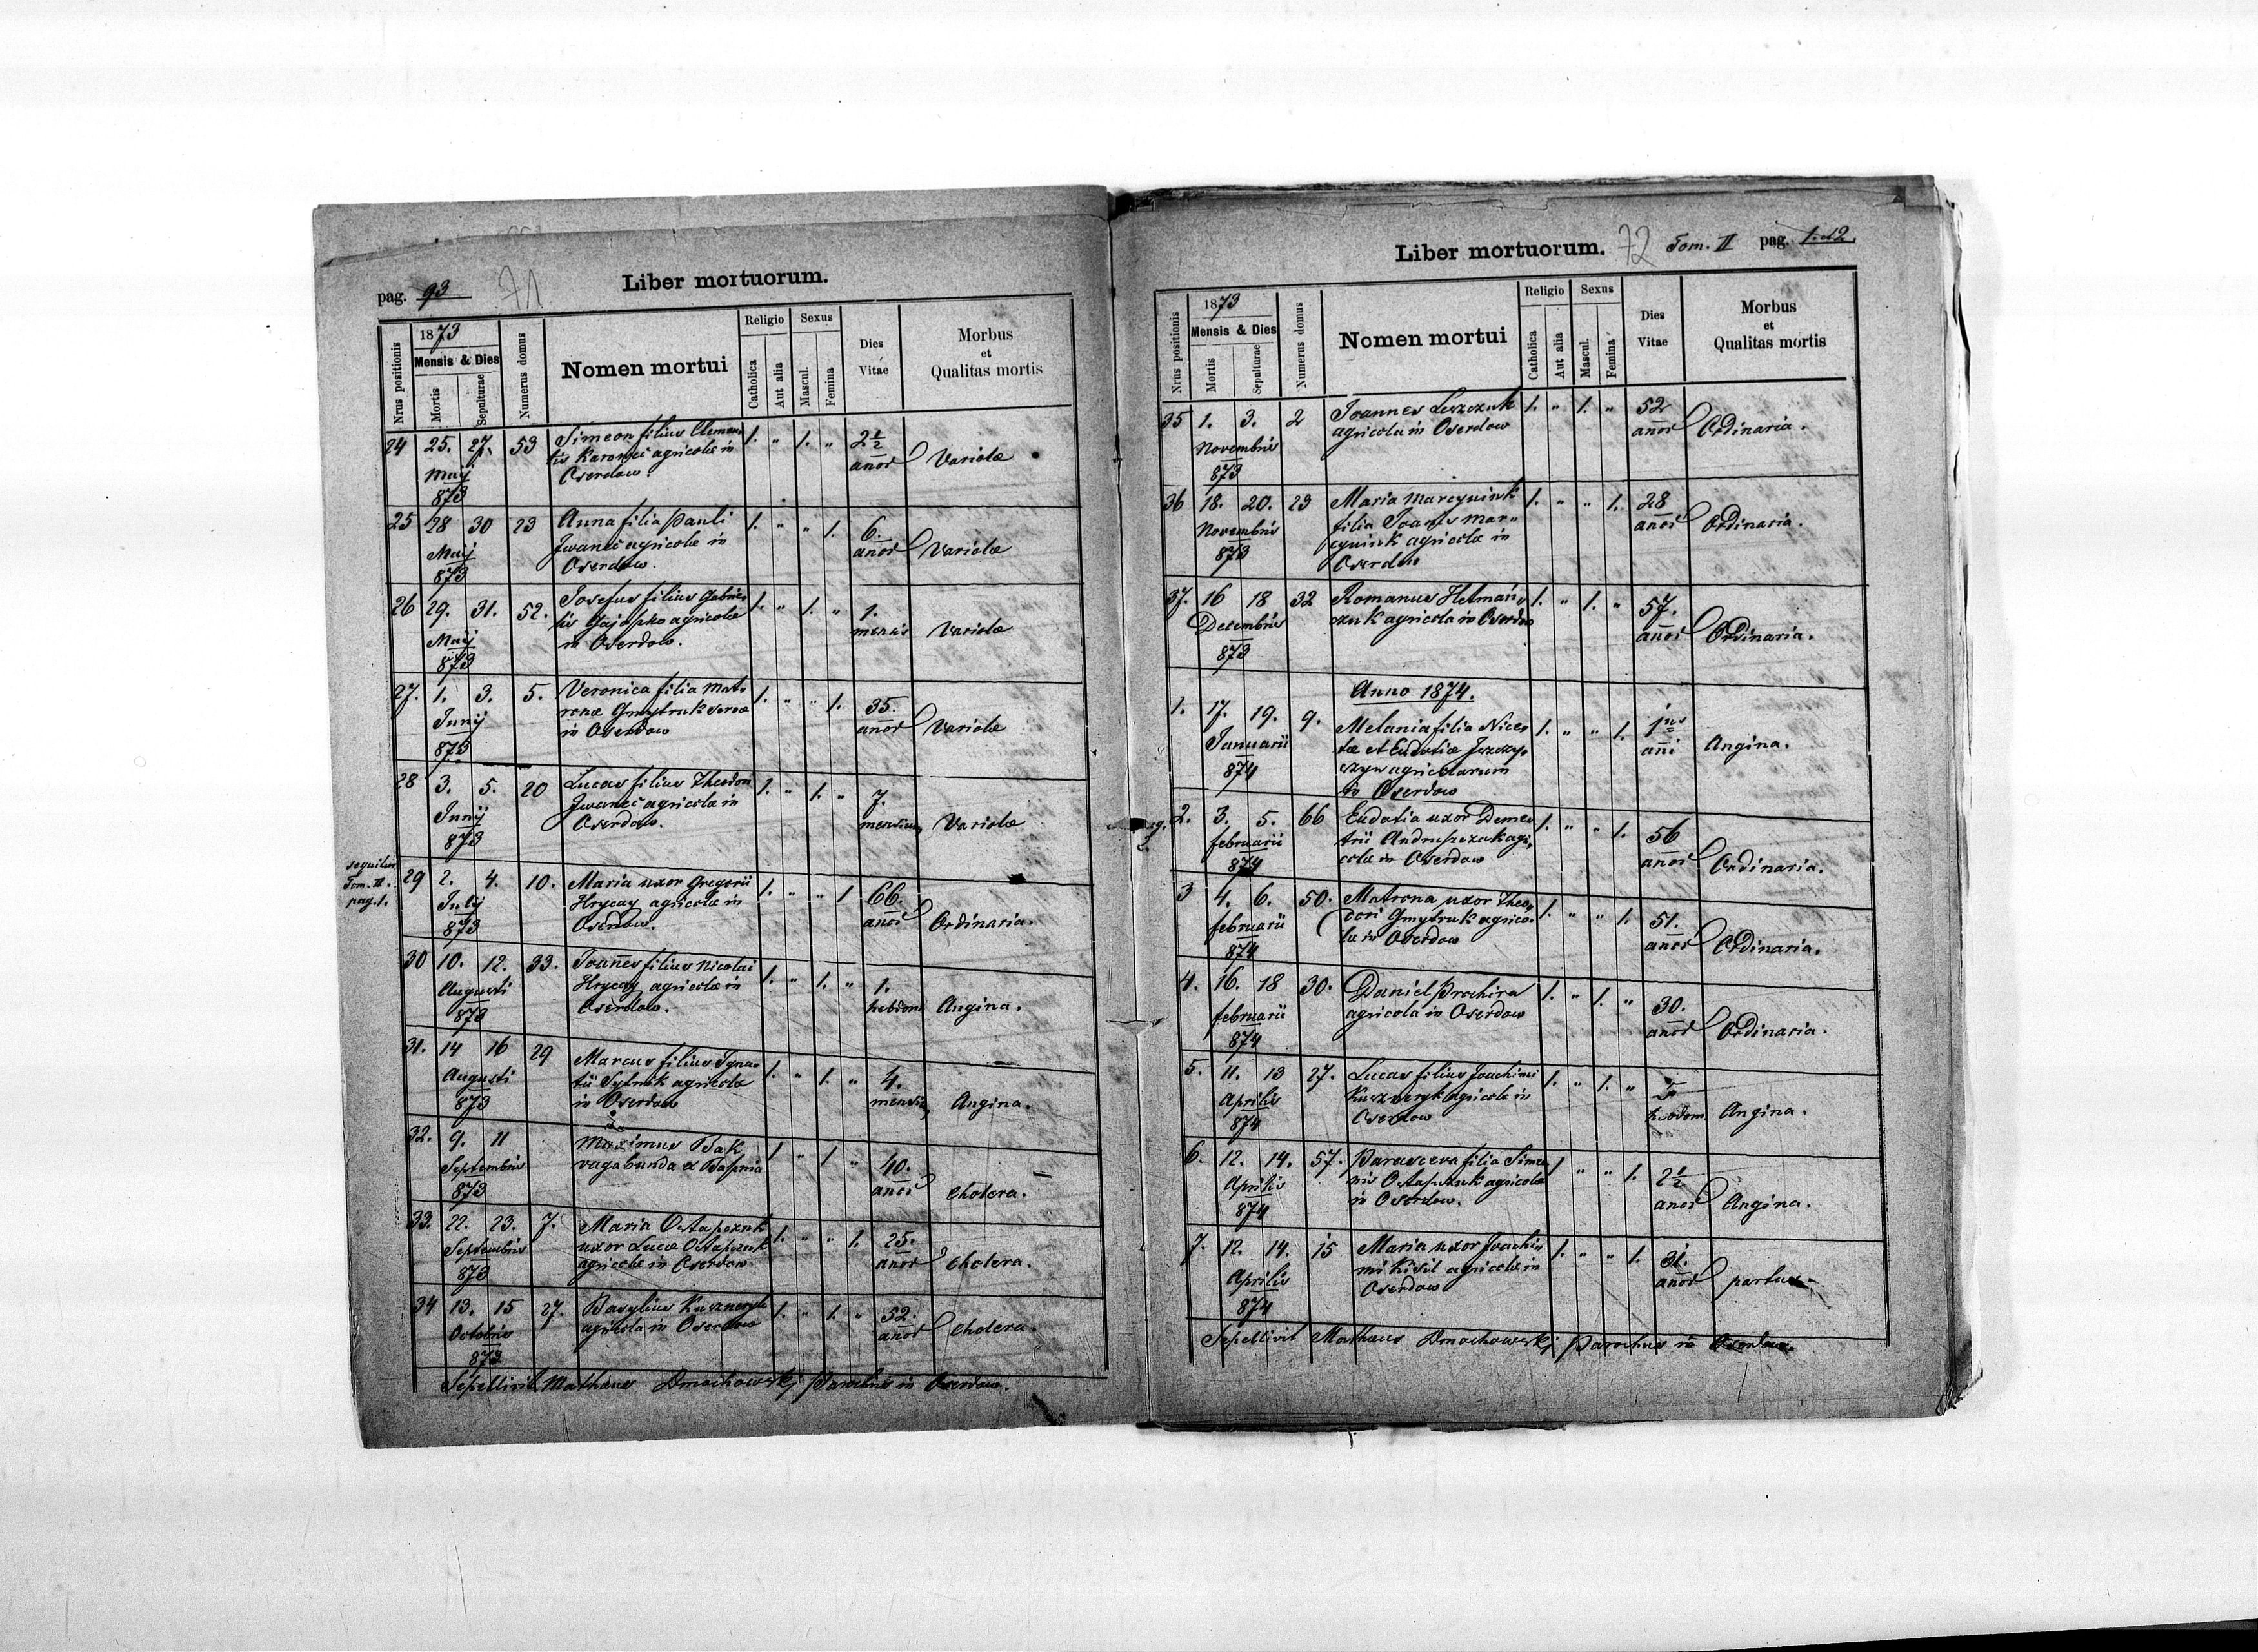 pag. 93
71
Liber mortuorum.
Nrus positionis
1873
Mensis & Dies
Mortis
Sepulturae
Numerus domus
Nomen mortui
Religio
Catholica
Aut alia
Sexus
Mascul.
Femina
Dies
Vitae
Morbus
et
Qualitas mortis
24 25. 27. 53 Simeon filius Clemen
tis Karonec agricolæ in
Oserdow. 1. " 1. " 2½
anor Variolæ
Maij
873
25 28 30 23 Anna filia Pauli
Iwanec agricolæ in
Oserdow. 1. " " 1. 6.
anor Variolæ
Maij
873
26 29. 31. 52. Josefus filius Gabrie
lis agricolæ
in Oserdow. 1. " 1. " 1.
mensis Variolæ
Maij
873
27. 1. 3. 5. Veronica filia Mat
ronæ Gmytruk
in Oserdow 1. " " 1. 35.
anor Variolæ
Junij
873
28 3. 5. 20 Lucas filius Theodori
Iwanec agricolæ in
Oserdow. 1. " 1. " 7.
mensium Variolæ
Junij
873
sequitur
Tom. II.
pag. 1.
29 2. 4. 10. Maria uxor Gregorii
Hrycay agricolæ in
Oserdow. 1. " " 1 66.
anor Ordinaria.
Julij
873
30 10. 12. 33. Joannes filius Nicolai
Hrycay agricolæ in
Oserdow. 1. " 1. " 1.
hebdom Angina.
Augusti
873
31. 14 16 29 Marcus filius Igna
tii Sytnik agricolæ
in Oserdow 1. " 1. " 4.
mensium Angina.
Augusti
873
32. 9. 11 Maximus Bak
vagabunda ex 1 " 1 " 40.
anor Cholera.
Septembris
873
33. 22. 23. 7. Maria Ostapczuk
uxor Lucæ Ostapczuk
agricolæ in Oserdow 1. " " 1. 25.
anor Cholera.
Septembris
873
34 13. 15 27. Basylius Kuszneryk
agricola in Oserdow 1. " 1. " 52.
anor Cholera.
Octobris
873
Sepellivit Mathæus Dmochowskj Parochus in Oserdow.
Liber mortuorum.
72
Tom. II pag. 1.
Nrus positionis
1873
Mensis & Dies
Mortis
Sepulturae
Numerus domus
Nomen mortui
Religio
Catholica
Aut alia
Sexus
Mascul.
Femina
Dies
Vitae
Morbus
et
Qualitas mortis
35 1. 3. 2 Joannes Leszczuk
agricola in Oserdow 1. " 1. " 52
anor Ordinaria.
Novembris
873
36 18. 20. 23 Maria Marcyniuk
filia Joanis Mar"
cyniuk agricolæ in
Oserdow 1. " " 1. 28
anor Ordinaria.
Novembris
873
37. 16 18 32 Romanus Hetmań"
czuk agricola in Oserdow 1. " 1. " 57.
anor Ordinaria.
Decembris
873
Anno 1874.
1. 17. 19. 9. Melania filia Nice
tæ et Eudoxiæ
agricolarum
in Oserdow 1. " " 1. 1ius
ani Angina.
Januarii
874
2. 3. 5. 66 Eudoxia uxor Deme
trii Andrusczak agri
colæ in Oserdow 1. " " 1. 56
anor Ordinaria.
februarii
874
3 4. 6. 50. Matrona uxor Theo
dori Gmytruk agrico
læ in Oserdow 1. " " 1. 51.
anor Ordinaria.
februarii
874
4. 16. 18 30. Daniel Prochira
agricola in Oserdow 1. " 1. " 30.
anor Ordinaria.
februarii
874
5. 11. 13 27. Lucas filius Joachimi
Kuszneryk agricolæ in
Oserdow 1. " 1. "
hebdom Angina.
Aprilis
874
6. 12. 14. 57. Parasceva filia Simeo
nis Ostapczuk agricolæ
in Oserdow. 1 " " 1. 2½
anor Angina.
Aprilis
874
7. 12. 14. 15 Maria uxor Joachi
mi Kisil agricolæ in
Oserdow 1. " " 1. 31.
anor partus
Aprilis
874
Sepellivit Mathæus Dmochowskj Parochus in Oserdow.